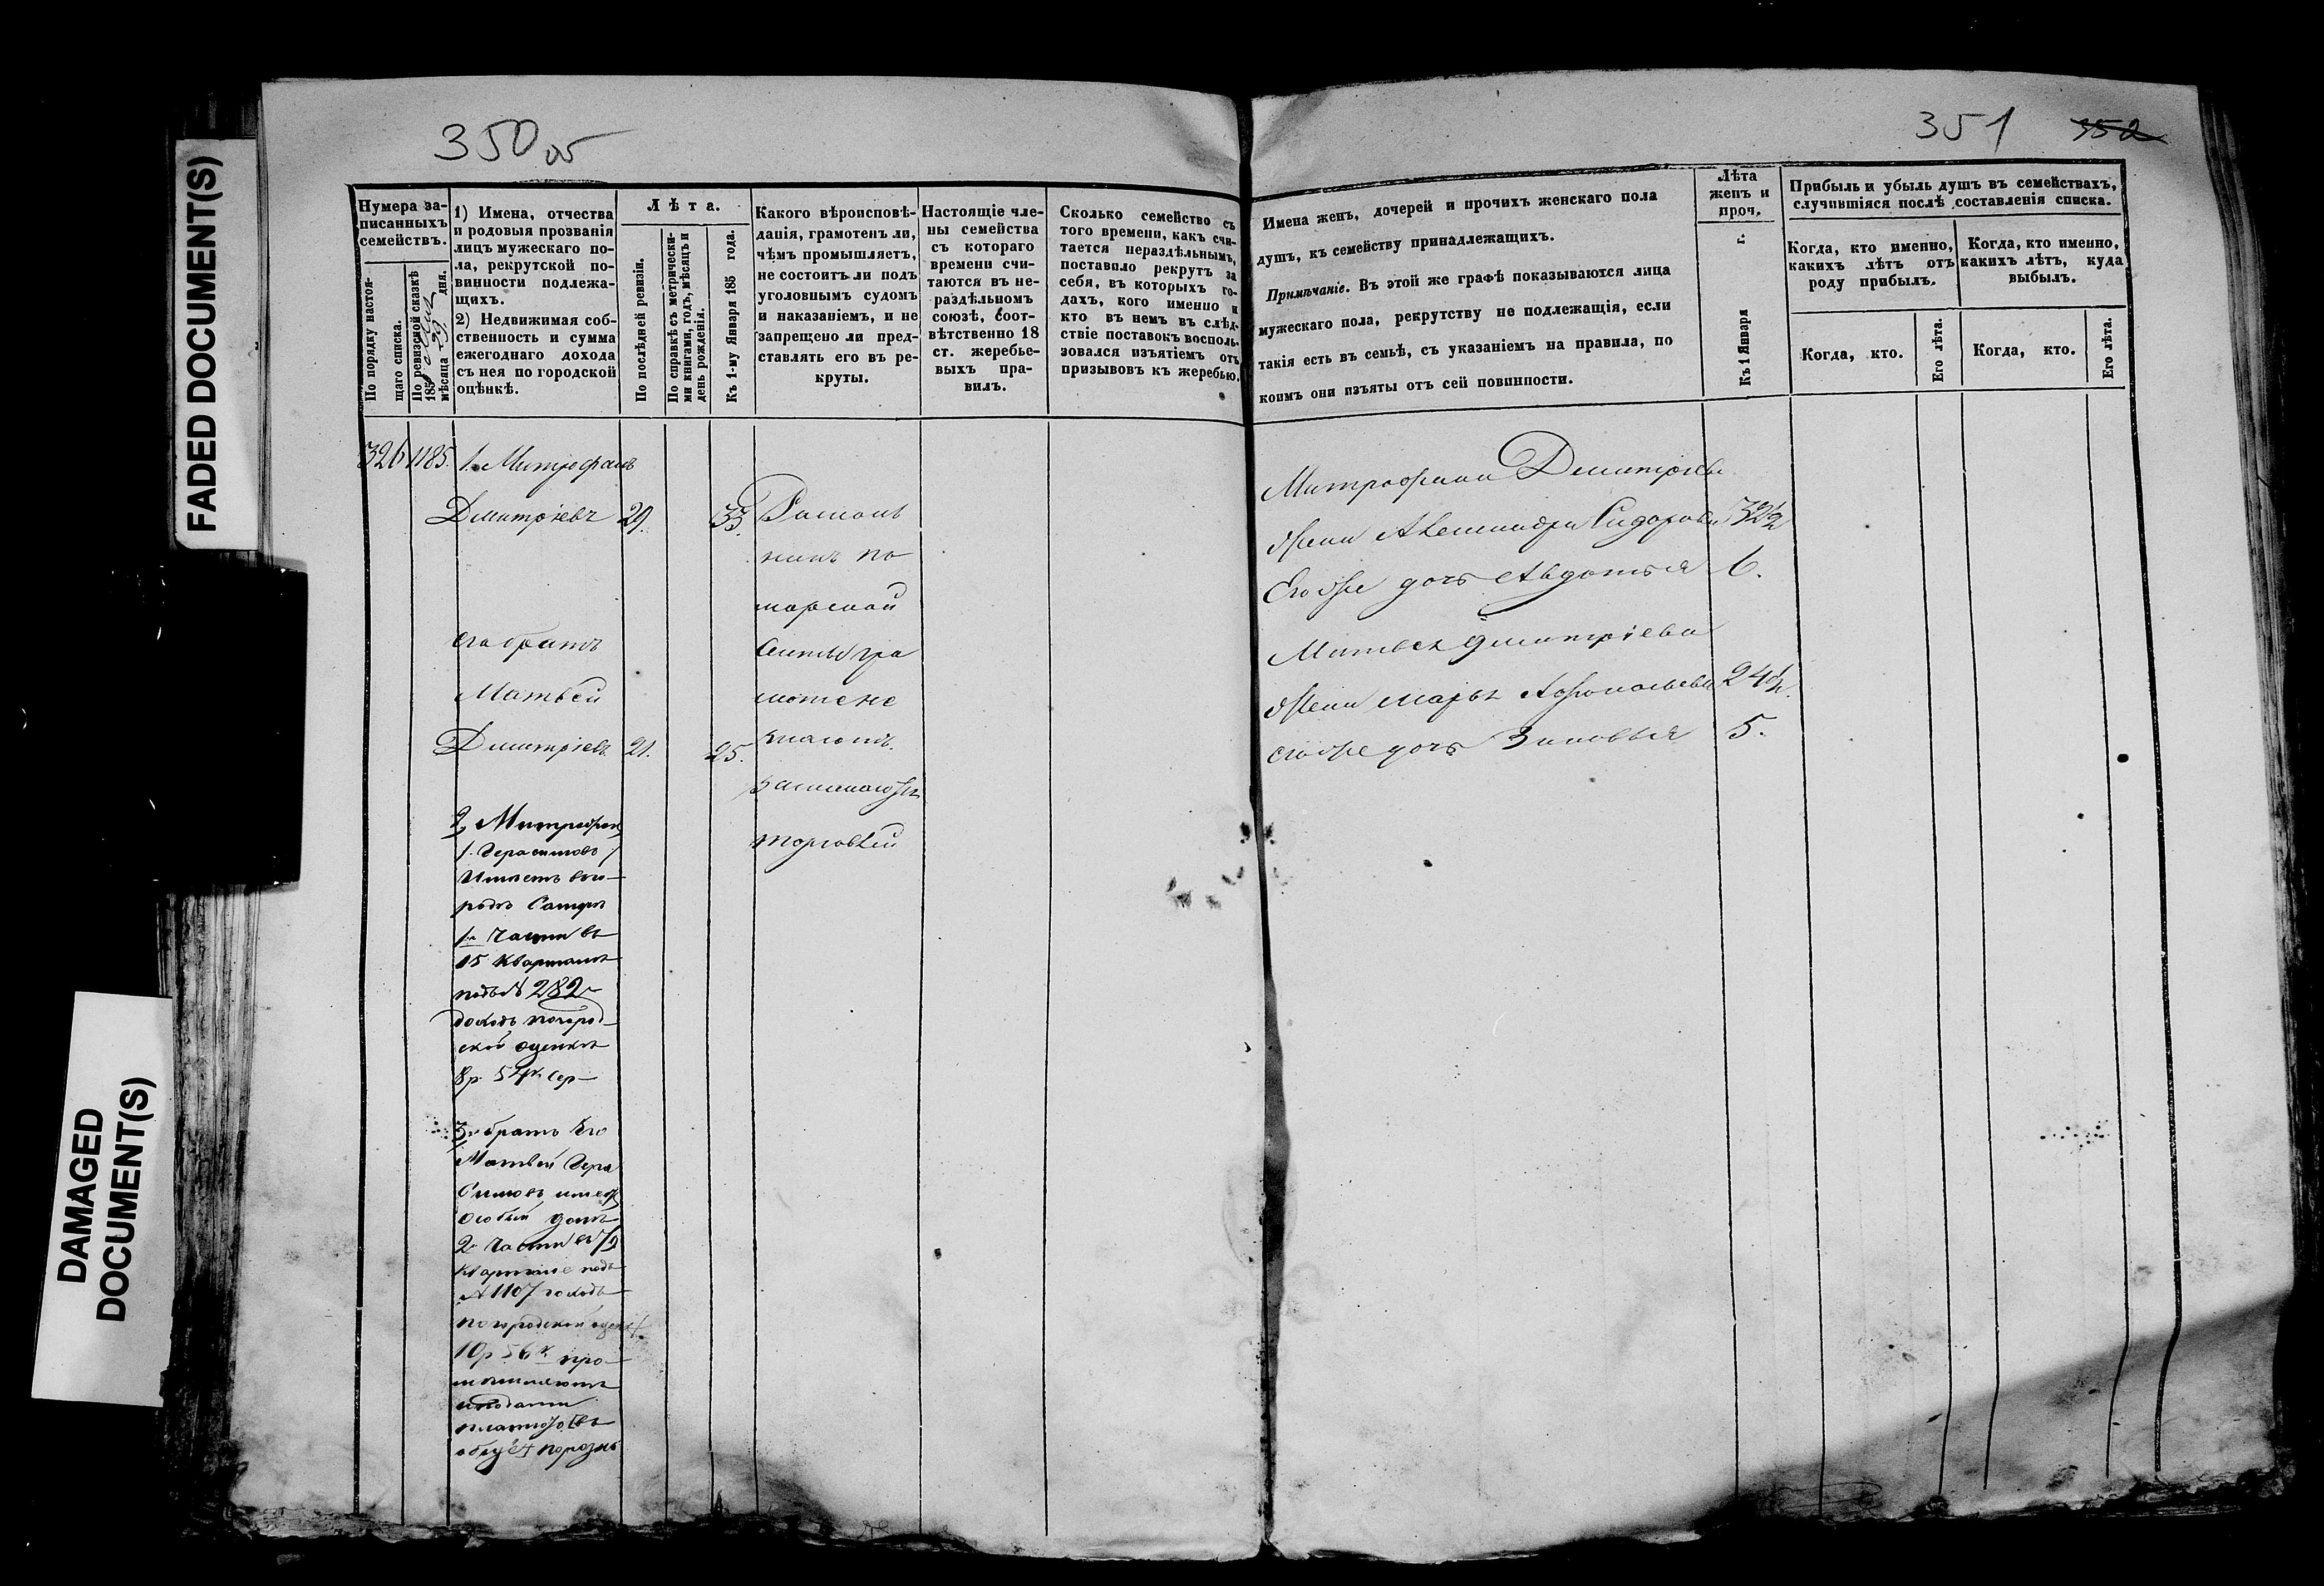 FADED DOCUMENT(S)
DAMAGED
DOCUMENT(S)
350 об
Нумера за-
писанныхъ
семействъ.
По порядку настоя-
щаго списка.
По ревизской сказкѣ
185
мѣсяца 29 дня.
1) Имена, отчества
и родовыя прозванія
лицъ мужескаго по-
ла, рекрутской по-
винности подлежа-
щихъ.
2) Недвижимая соб-
ственность и сумма
ежегоднаго дохода
съ нея по городской
оцѣнкѣ.
Лѣта.
По послѣдней ревизіи.
По справкѣ съ метрически-
ми книгами, годъ, мѣсяцъ и
день рожденія.
Къ 1-му Января 185 года.
Какого вѣроисповѣ-
данія, грамотенъ ли,
чѣмъ промышляетъ,
не состоитъ ли подъ
уголовнымъ судомъ
и наказаніемъ, и не
запрещено ли пред-
ставлять его въ ре-
круты.
Настоящіе чле-
ны семейства
съ котораго
времени счи-
таются въ не-
раздѣльномъ
союзѣ, соот-
вѣтственно 18
ст. жеребье-
выхъ пра-
вилъ.
Сколько семейство съ
того времени, какъ счи-
тается нераздѣльнымъ,
поставило рекрутъ за
себя, въ которыхъ го-
дахъ, кого именно и
кто въ немъ въ слѣд-
ствіе поставокъ восполь-
зовался изъятіемъ отъ
призывовъ къ жеребью.
326 1185. 1. Митрофанъ
Дмитріевъ 29. 33.
его братъ
Матвѣй
Дмитріевъ 21. 25.
Раскол
никъ по
морской
секты гра
мотене
знаютъ.
занимаютъся
торговлей
2, Митрофан
/. Герасимовъ /
Имѣетъ въ го
родѣ
1й Части въ
15 Кварталѣ
подъ № 282
доходъ погород
ской оценкѣ
8р. 54к сер
3. братъ Его
Матвѣй Гера
симовъ имеетъ
особый домъ
2й части въ
Квартале подъ
№ 1107 доходъ
погородской оценк
10р 56к про
мышляютъ
иподати
платютъ въ
порознь
351 352
Имена женъ, дочерей и прочихъ женскаго пола
душъ, къ семейству принадлежащихъ.
Примѣчаніе. Въ этой же графѣ показываются лица
мужескаго пола, рекрутству не подлежащія, если
такія есть въ семьѣ, съ указаніемъ на правила, по
коимъ они изъяты отъ сей повинности.
Лѣта
женъ и
проч.
Къ 1 Января г.
Прибыль и убыль душъ въ семействахъ,
случившіяся послѣ составленія списка.
Когда, кто именно,
какихъ лѣтъ отъ
роду прибылъ.
Когда, кто именно,
какихъ лѣтъ, куда
выбылъ.
Когда, кто.
Его лѣта.
Когда, кто.
Его лѣта.
Митрофана Дмитріева
жена Александра Сидорова 32½
Его же дочь Авдотья 6.
Матвея Дмитріева
жена Марья Афонасьева 24½.
его же дочь Зиновья 5.